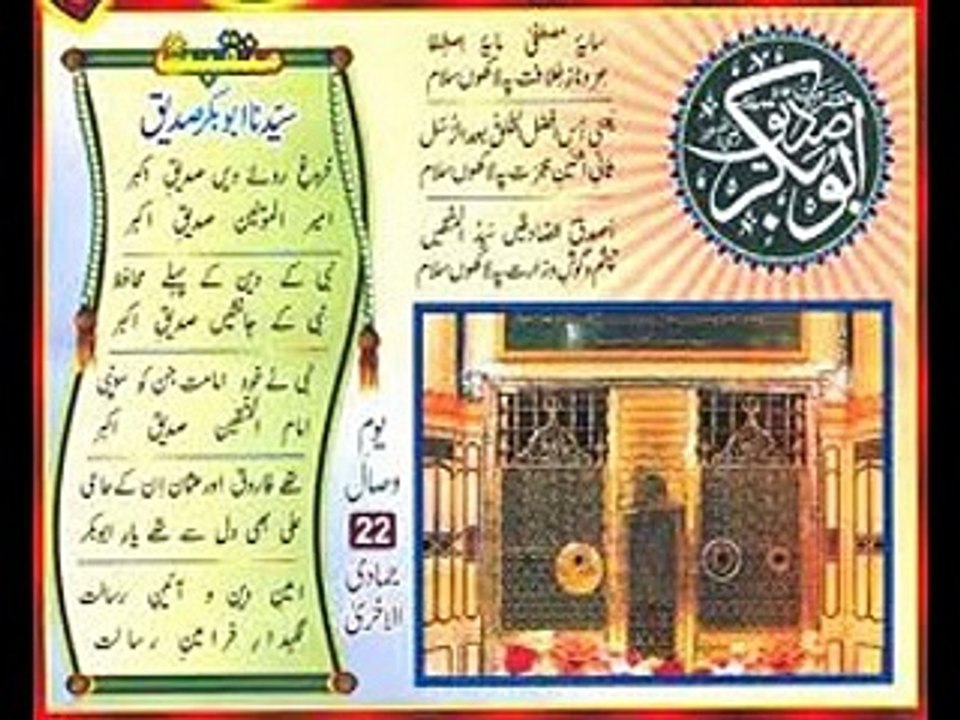 منقبت
سیّدنا ابوبکر صدیق
فروغ روئے دیں صدیقِ اکبر
امیر المؤمنین صدیقِ اکبر
نبی کے دین کے پہلے محافظ
نبی کے جانشیں صدیقِ اکبر
نبی نے خود امامت جن کو سونپی
امام المتقین صدیقِ اکبر
تھے فاروق اور عثمان اِن کے حامی
علی بھی دل سے تھے یارِ ابوبکر
امینِ دین و آئینِ رسالت
نگہدارِ فرامینِ رسالت
سایۂ مصطفیٰ مایۂ اصطفا
عز و نازِ خلافت پہ لاکھوں سلام
یعنی اُس افضل الخلق بعد الرسل
ثانی اثنین ہجرت پہ لاکھوں سلام
اصدق الصادقیں سید المتقیں
چشم و گوشِ وزارت پہ لاکھوں سلام
ابوبکر صدیق
یومِ
وصال
22
جمادی
الاخریٰ